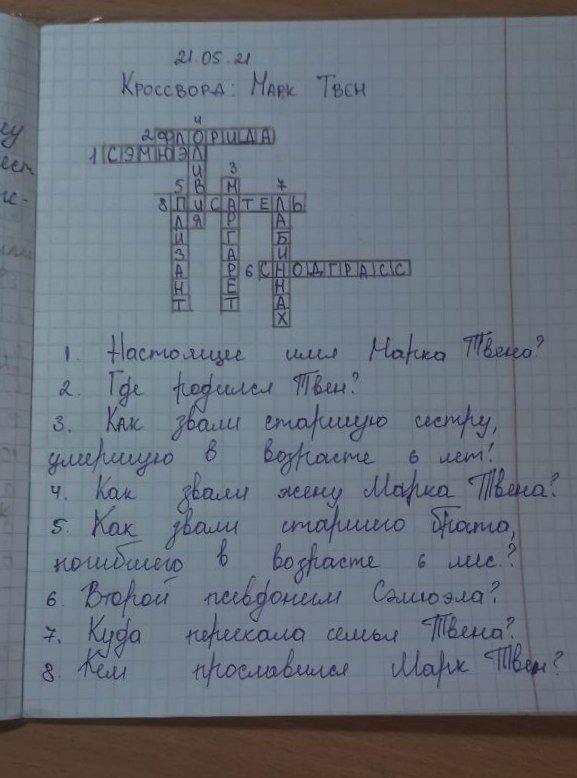 21.05.21
Кроссворд: Марк Твен
4
2 ФЛОРИДА
1 СЭМЮЭЛ
И 3
5 В М 7
8 ПИСАТЕЛЬ
Л Я Р А
И Г Б
З А И
А Р 6 СНОДГРАСС
Н Е Н
Т Т А
Х
1. Настоящее имя Марка Твена?
2. Где родился Твен?
3. Как звали старшую сестру,
умершую в возрасте 6 лет?
4. Как звали жену Марка Твена?
5. Как звали старшего брата,
погибшего в возрасте 6 мес.?
6. Второй псевдоним Сэмюэла?
7. Куда переехала семья Твена?
8. Кем прославился Марк Твен?